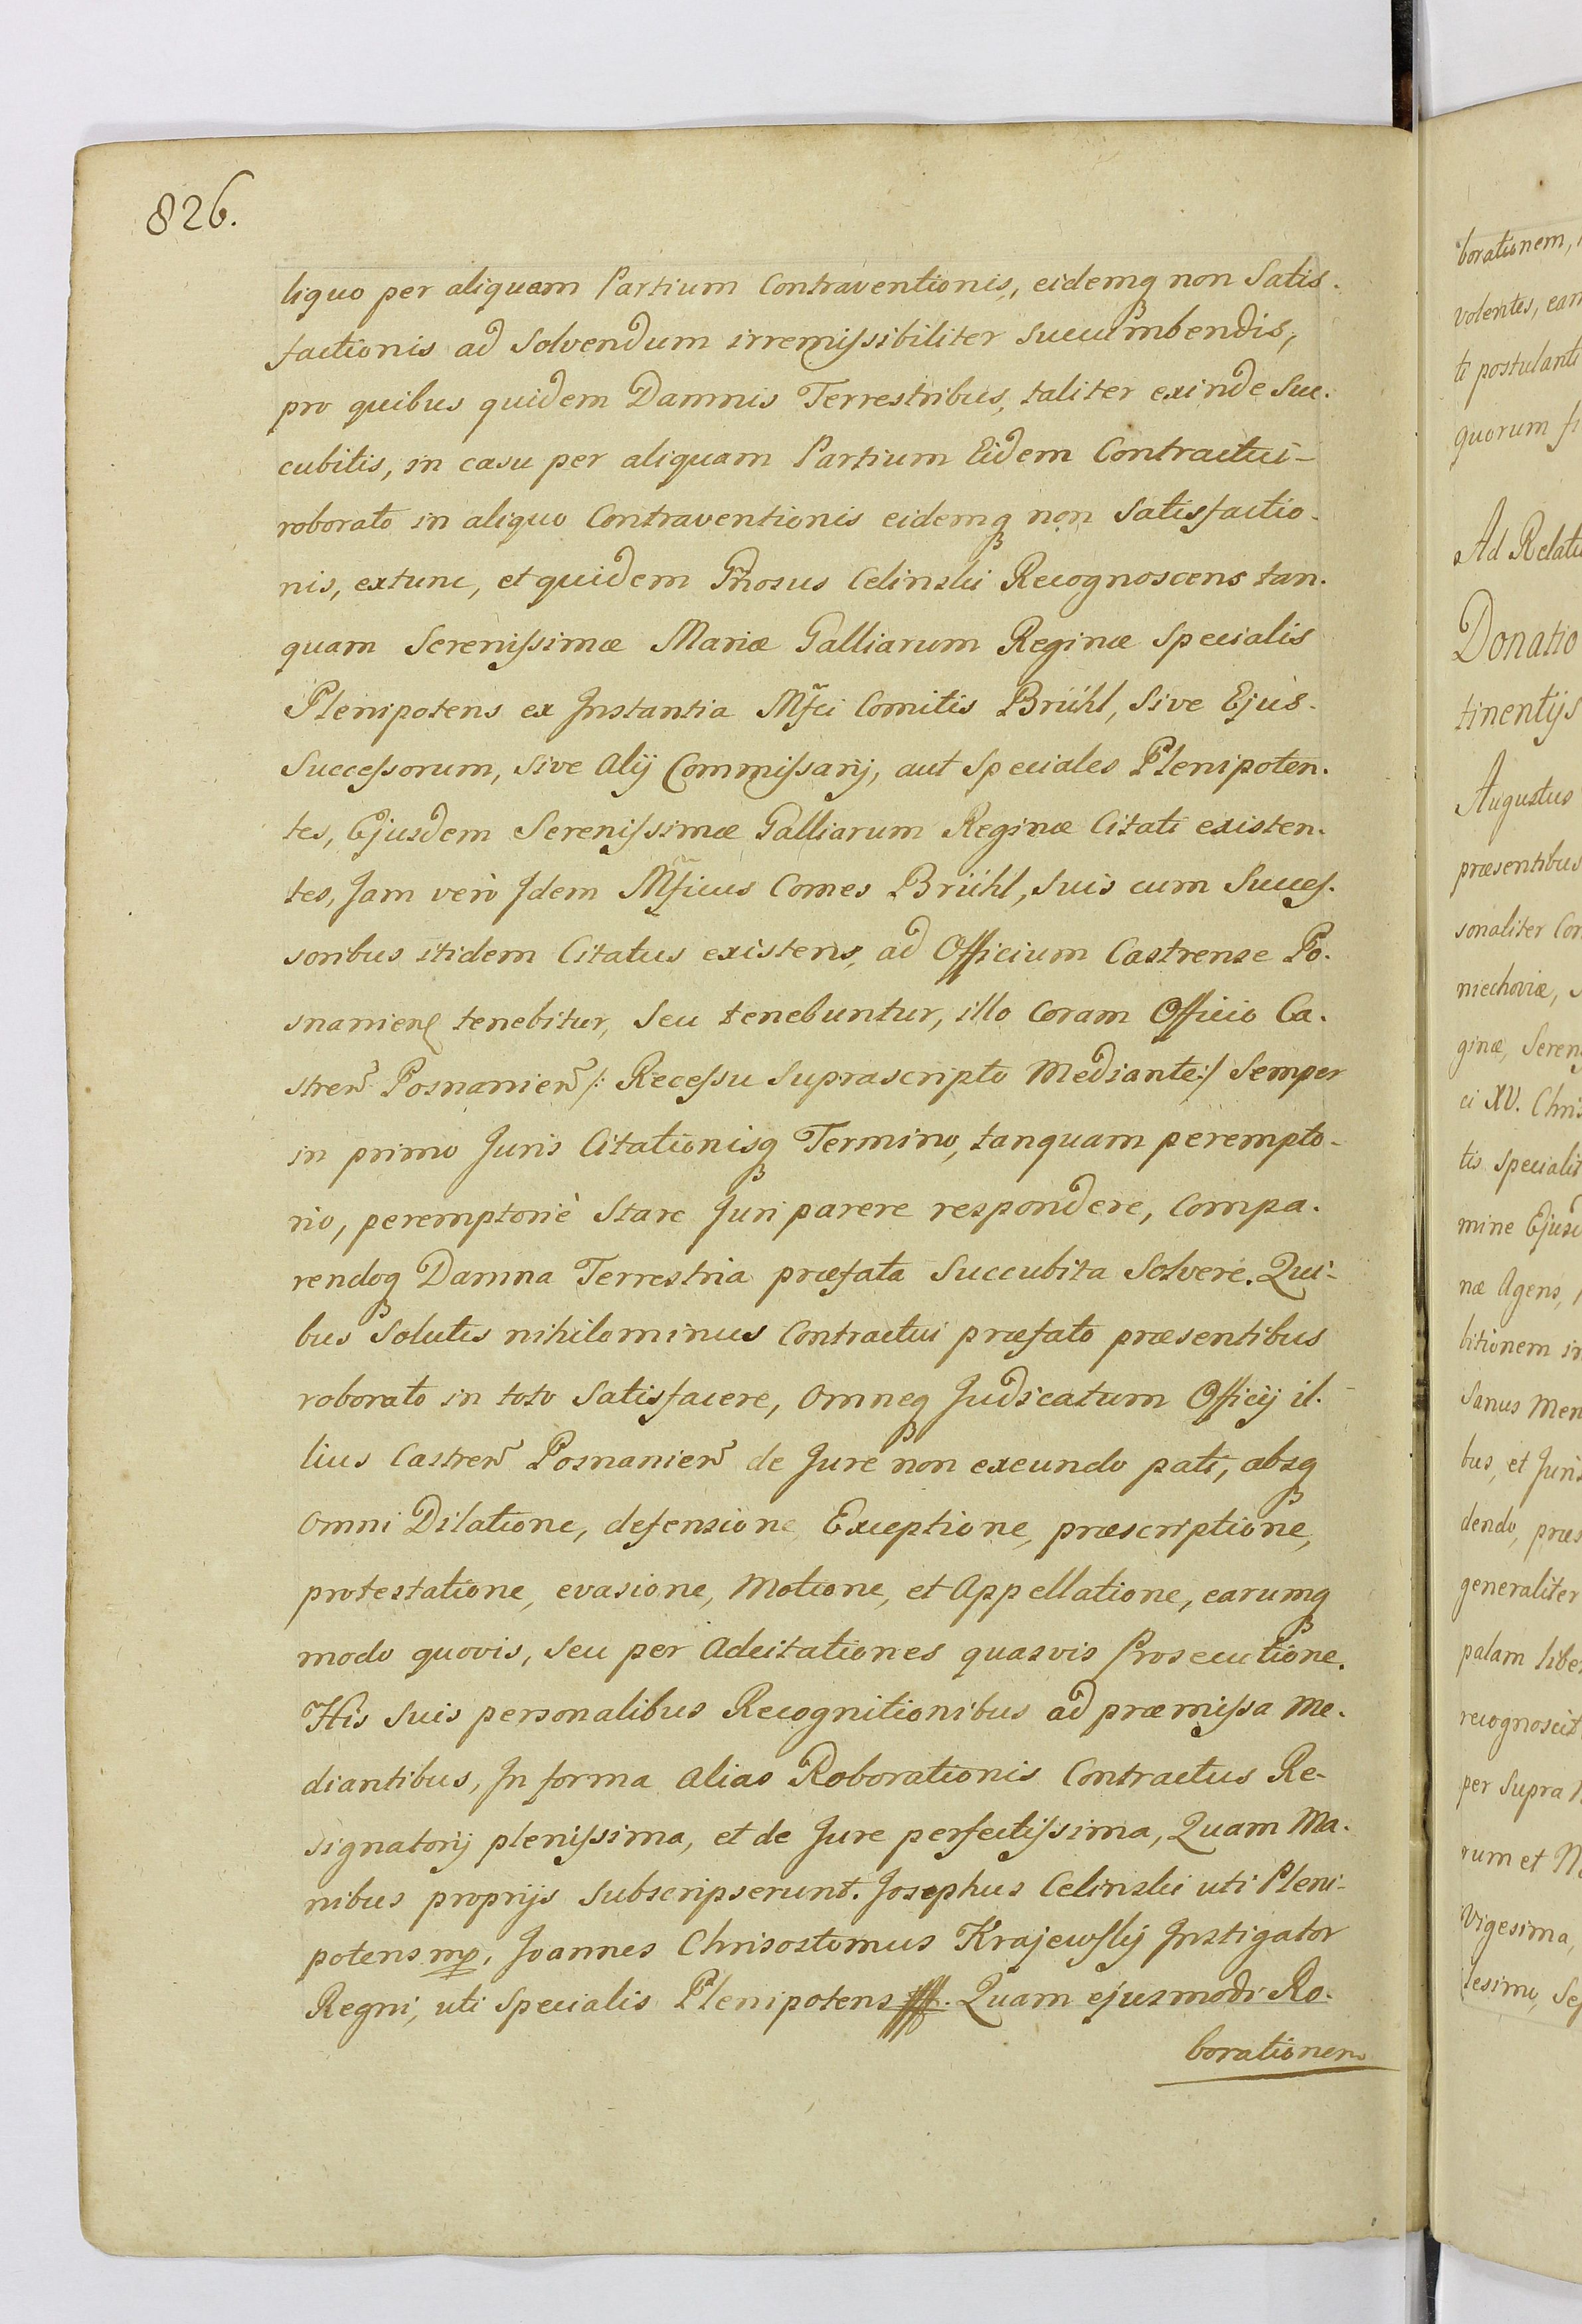 826.
liquo per aliquam Partium Contraventionis, eidemq non Satis-
factionis ad Solvendum irremissibiliter succumbendis,
pro quibus quidem Damnis Terrestribus, taliter exinde Suc-
cubitis, in casu per aliquam Partium Eidem Contractui
roborato in aliquo Contraventionis eidemq non Satisfactio-
nis, extunc, et quidem Gñosus Celinski Recognoscens tan-
quam Serenissimæ Mariæ Galliarum Reginæ Specialis
Plenipotens ex Instantia Mfci Comitis Brühl, Sive Ejus-
Successorum, Sive alij Commissarij, aut Speciales Plenipoten-
tes, Ejusdem Serenissimæ Galliarum Reginæ Citati existen-
tes, Jam verò Idem Mficus Comes Brühl, Suis cum Succes-
soribus itidem Citatus existens, ad Officium Castrense Po-
snanien tenebitur, Seu tenebuntur, illo Coram Officio Ca-
stren Posnanien /: Recessu Suprascripto Mediante :/ Semper
in primo Juris Citationisq Termino, tanquam perempto-
rio, peremptoriè Stare Juri parere respondere, Compa-
rendoq Damna Terrestria præfata Succubita Solvere. Qui-
bus Solutis nihilominus Contractui præfato præsentibus
roborato in toto Satisfacere, Omneq Judicatum Officij il-
lius Castren Posnanien de Jure non exeundo pati, absq
Omni Dilatione, defensione Exceptione, præscriptione,
protestatione, evasione, Motione, et Appellatione, earumq
modo quovis, Seu per Adcitationes quasvis Prosecutione.
His Suis personalibus Recognitionibus ad præmissa Me-
diantibus, In forma alias Roborationis Contractus Re-
signatorij plenissima, et de Jure perfectissima, Quam Ma-
nibus proprijs Subscripserunt. Josephus Celinski uti Pleni-
potens mp, Joannes Chrisostomus Krajewskij Instigator
Regni, uti Specialis Plenipotens. Quam ejusmodi Ro-
borationem
borationem,
volentes, eam
ti postulanti
quorum
Ad Relati
Donatio
tinentijs
Augustus
præsentibus
sonaliter Cor
niechoviæ,
ginæ, Seren
ci XV. Chris
tis Specialit
mine Ejusd
næ Agens,
litionem in
Sanus Men
bus, et Juris
dendo, præs
generaliter
palam liber
recognoscit
per Supra
rum et
Vigesima,
lesimo, Sep